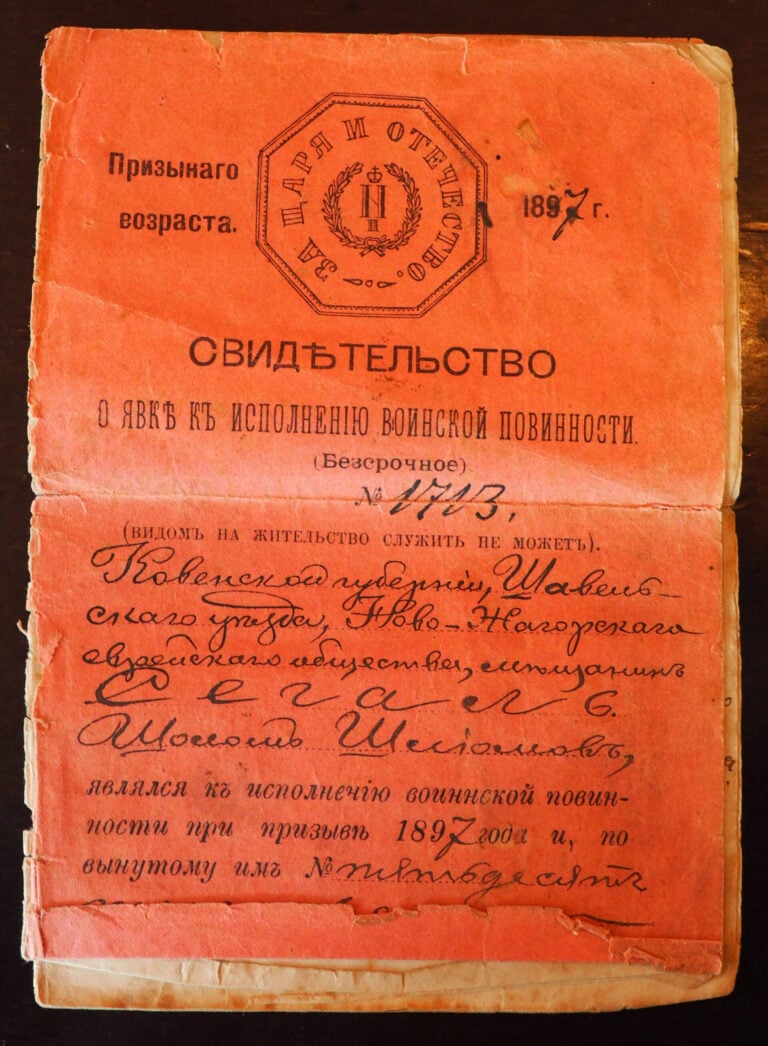 Призывнаго
возраста.
ЗА ЦАРЯ И ОТЕЧЕСТВО.
Н
II
1897 г.
СВИДѢТЕЛЬСТВО
О ЯВКѢ КЪ ИСПОЛНЕНІЮ ВОИНСКОЙ ПОВИННОСТИ.
(Безсрочное)
№ 1713.
(ВИДОМЪ НА ЖИТЕЛЬСТВО СЛУЖИТЬ НЕ МОЖЕТЪ).
Ковенской губерніи, Шавель-
скаго уѣзда, Ново-Жагорскаго
еврейскаго общества, мѣщанинъ
Сегаль.
Шоломъ
являлся къ исполненію воинской повин-
ности при призывѣ 1897 года и, по
вынутому имъ № пятьдесятъ